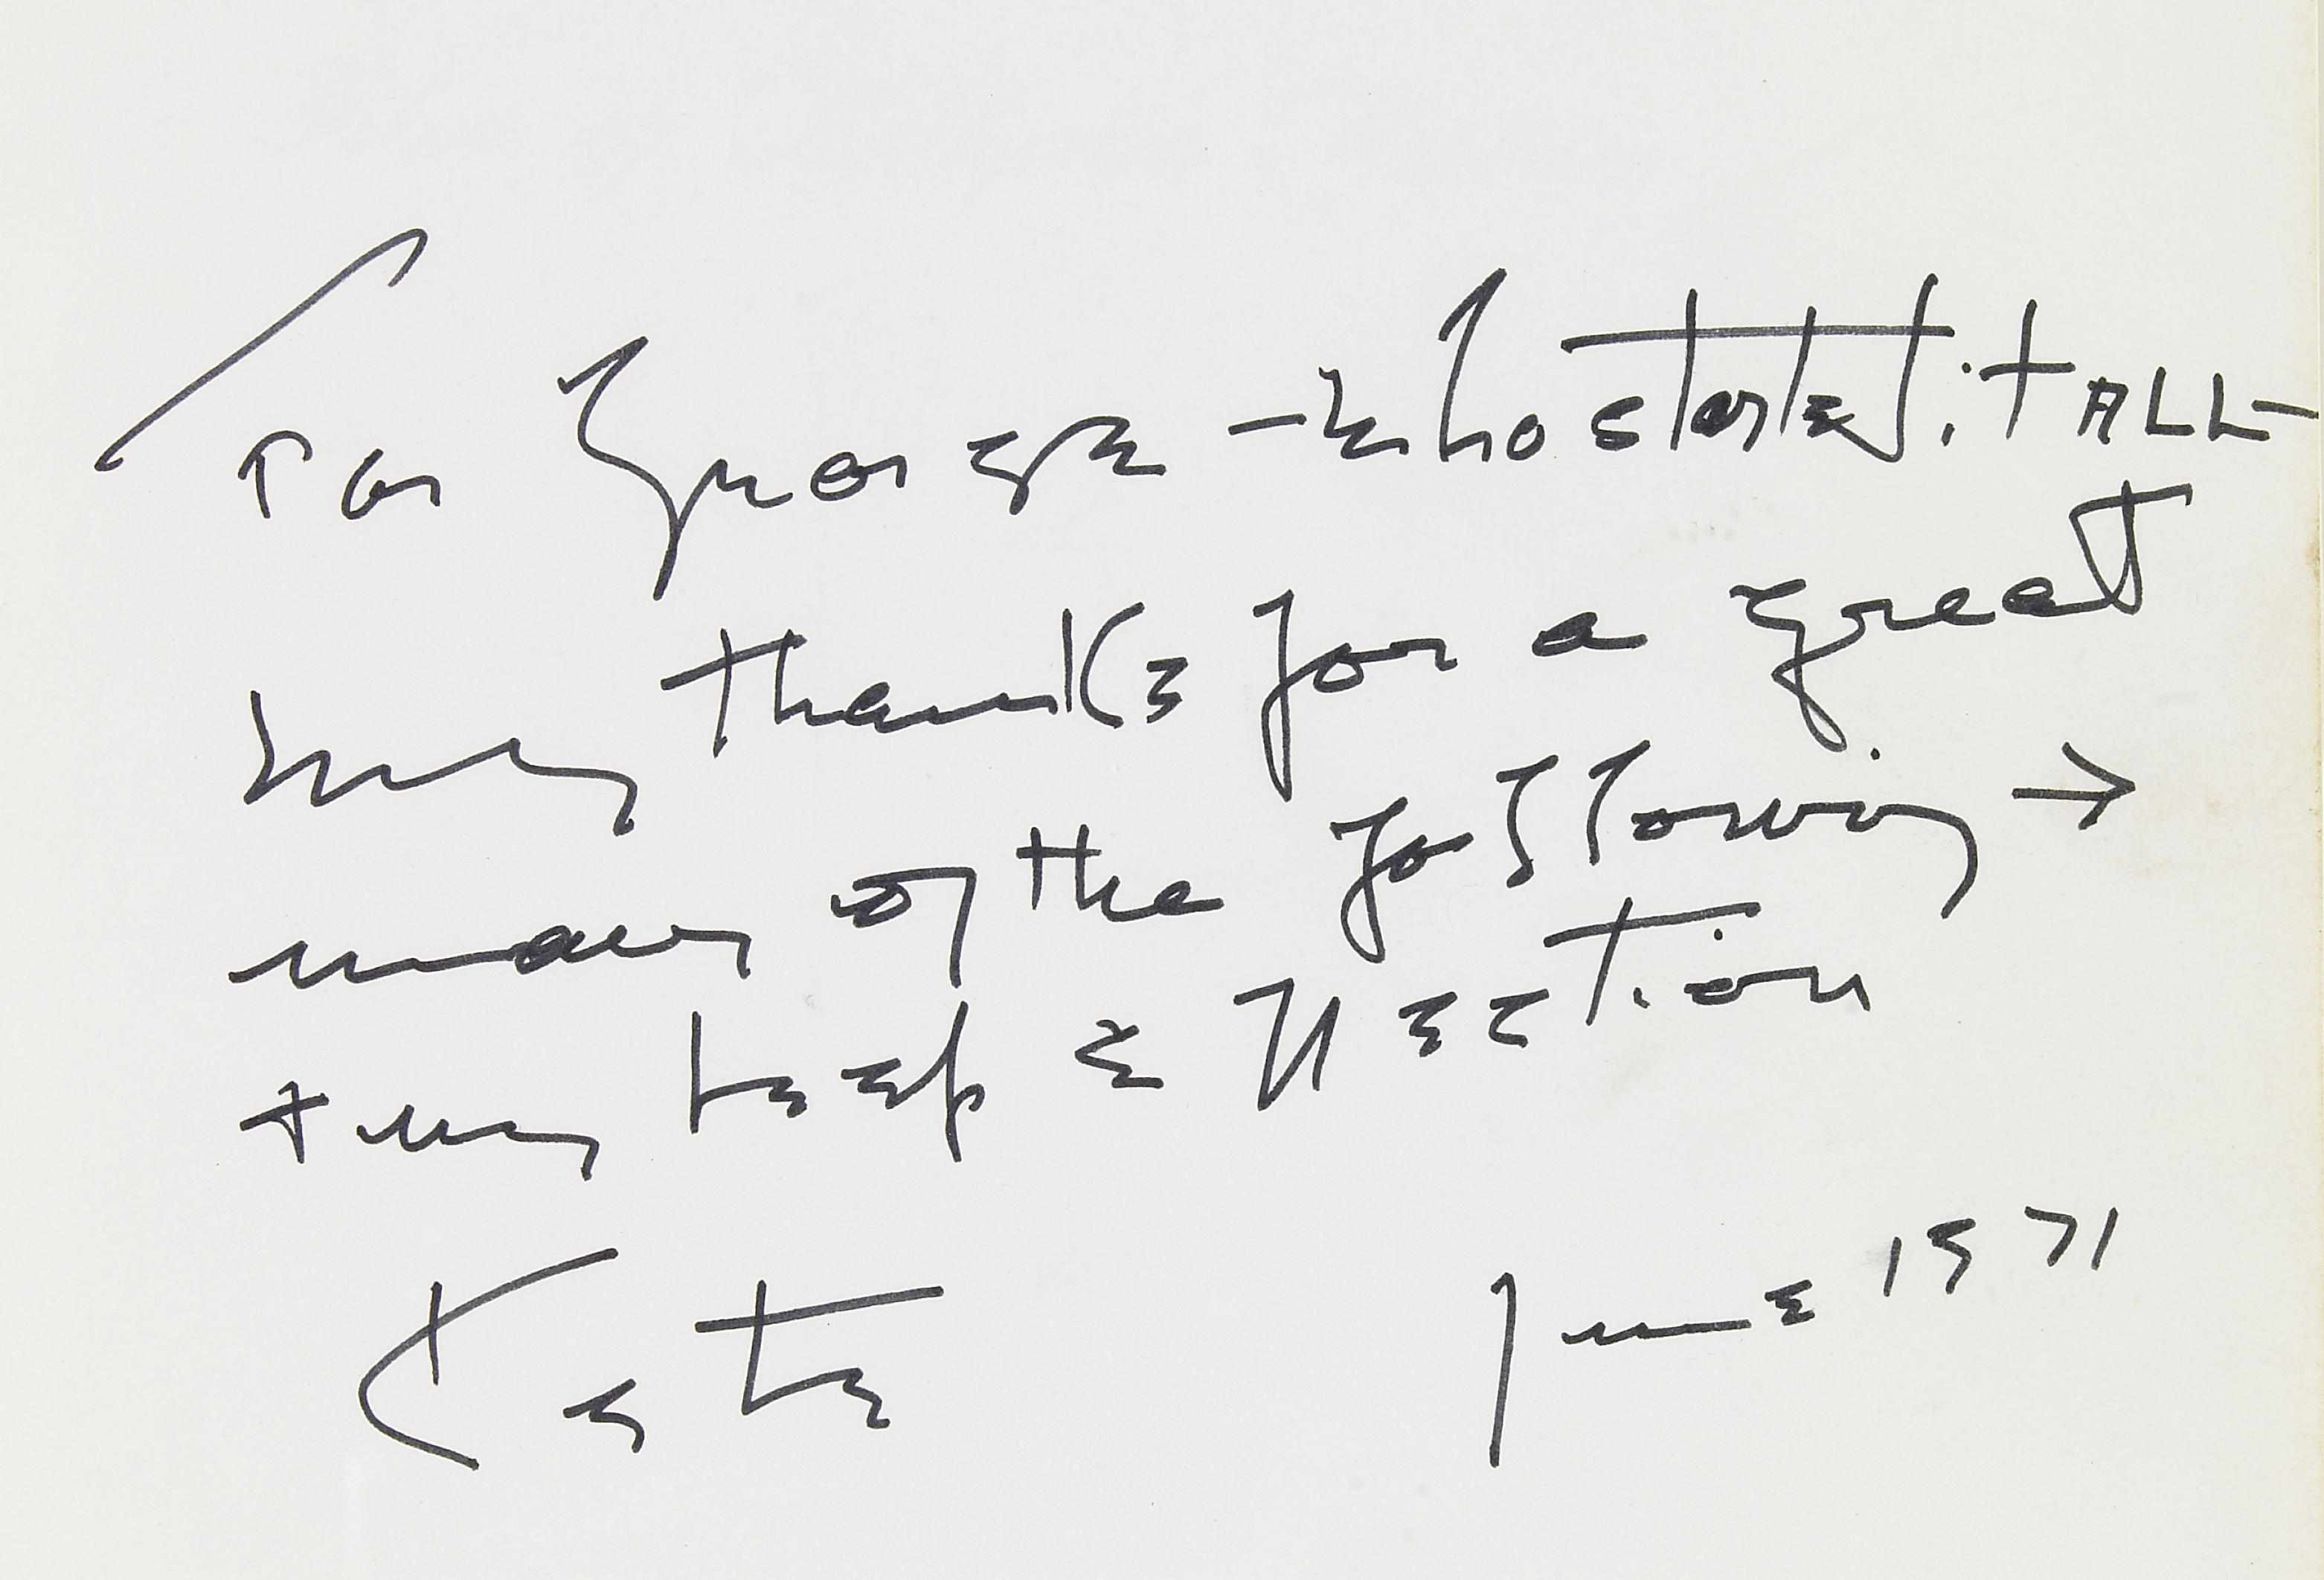 For George - who started it ALL -
my thanks for a great
many of the following →
+ my deep affection
Kate June 1971